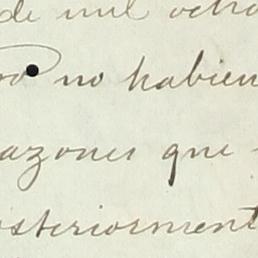 de mil ocho
no habien
azones que
steriorment